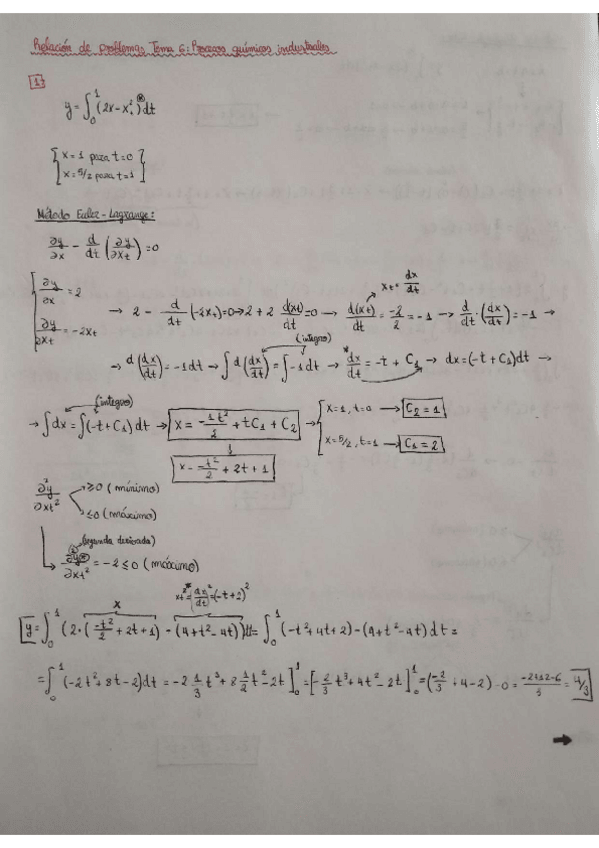 Relación de problemas Tema 6: Procesos químicos industriales
1.
y = ∫₀¹ (2x - xₜ²) dt
{ x = 1 para t = 0 }
{ x = 5/2 para t = 1 }
Método Euler-Lagrange:
∂y/∂x - d/dt (∂y/∂xₜ) = 0
{ ∂y/∂x = 2
{ ∂y/∂xₜ = -2xₜ
xₜ = dx/dt
→ 2 - d/dt (-2xₜ) = 0 → 2 + 2 d(xₜ)/dt = 0 → d(xₜ)/dt = -2/2 = -1 → d/dt · (dx/dt) = -1 →
(integro)
→ d (dx/dt) = -1 dt → ∫ d (dx/dt) = ∫ -1 dt → dx/dt* = -t + C₁ → dx = (-t + C₁) dt →
(integro)
→ ∫ dx = ∫ (-t + C₁) dt → x = -t²/2 + tC₁ + C₂ → { x = 1, t = 0 → C₂ = 1
{ x = 5/2, t = 1 → C₁ = 2
x = -t²/2 + 2t + 1
∂²y/∂xₜ² ≥ 0 (mínimo)
≤ 0 (máximo)
(segunda derivada)
→ ∂²y/∂xₜ² = -2 ≤ 0 (máximo)
x xₜ²* = (dx/dt)² = (-t + 2)²
y = ∫₀¹ (2 · (-t²/2 + 2t + 1) - (4 + t² - 4t)) dt = ∫₀¹ (-t² + 4t + 2) - (4 + t² - 4t) dt =
= ∫₀¹ (-2t² + 8t - 2) dt = -2 1/3 t³ + 8 1/2 t² - 2t ]₀¹ = [-2/3 t³ + 4t² - 2t]₀¹ = (-2/3 + 4 - 2) - 0 = (-2 + 12 - 6)/3 = 4/3